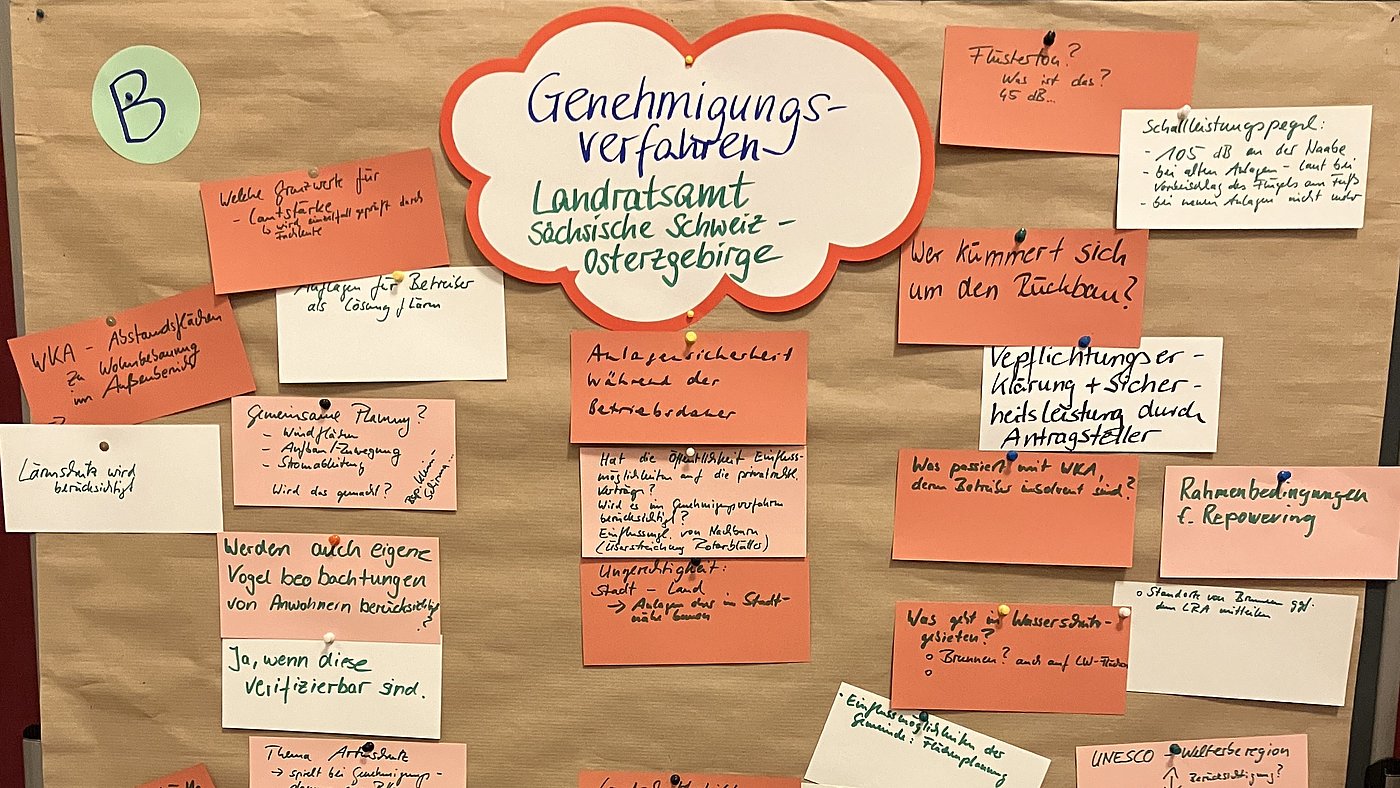 B
Genehmigungs-
verfahren
Landratsamt
Sächsische Schweiz -
Osterzgebirge
Welche Grenzwerte für
- Lautstärke
↳ wird einzelfall geprüft durch
Fachleute
Auflagen für Betreiber
als Lösung f. Lärm
WKA - Abstandsflächen
zu Wohnbebauung
im Außenbereich
Lärmschutz wird
berücksichtigt
Gemeinsame Planung?
- Windflächen
- Aufbau/Zuwegung
- Stromableitung
Wird das gemacht?
Werden auch eigene
Vogelbeobachtungen
von Anwohnern berücksichtigt
?
Ja, wenn diese
verifizierbar sind.
Thema Artenschutz
→ spielt bei Genehmigungs-
Anlagensicherheit
während der
Betriebsdauer
Hat die Öffentlichkeit Einfluss-
möglichkeiten auf die privatrechtl.
Verträge?
Wird es im Genehmigungsverfahren
berücksichtigt?
Einflussmgl. von Nachbarn
(Überstreichung Rotorblätter)
Ungerechtigkeit:
Stadt - Land
→ Anlagen in Stadt-
nähe bauen
Flüsterton?
Was ist das?
45 dB...
Schallleistungspegel:
- 105 dB an der Naabe
- bei alten Anlagen - laut bei
Vorbeischlag des Flügels am Fuß
- bei neuen Anlagen nicht mehr
Wer kümmert sich
um den Rückbau?
Vepflichtungser-
klärung + Sicher-
heitsleistung durch
Antragsteller
Was passiert mit WKA,
deren Betreiber insolvent sind?
Rahmenbedingungen
f. Repowering
Was geht in Wasserschutz-
gebieten?
o Brunnen? auch auf LW-Flächen
o
o Standorte von Brunnen ggf.
dem LRA mitteilen
• Einflussmöglichkeiten der
Gemeinde: Flächenplanung
UNESCO - Welterberegion
↑ Berücksichtigung?